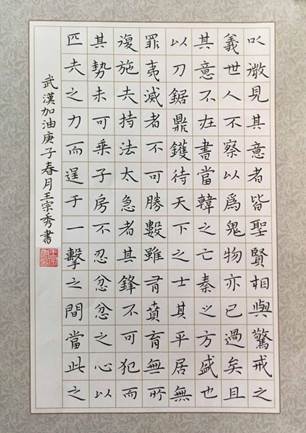 以微見其意者皆聖賢相與驚戒之
義世人不察以爲鬼物亦已過矣且
其意不在書當韓之亡秦之方盛也
以刀鋸鼎鑊待天下之士其平居無
罪夷滅者不可勝數雖有賁育無所
複施夫持法太急者其鋒不可犯而
其勢未可乘子房不忍忿忿之心以
匹夫之力而逞于一擊之間當此之
武漢加油庚子春月王宗秀書